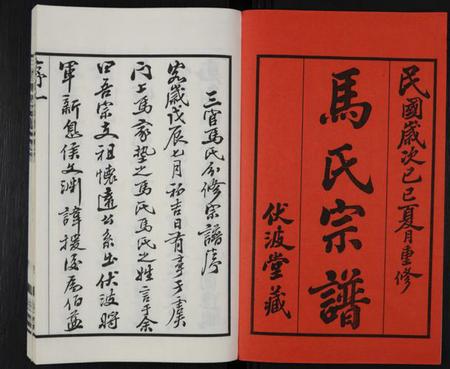 民國歲次己巳夏月重修
馬氏宗譜
伏波堂藏
三官馬氏分修宗譜序
歲戊辰七月初吉日有事于虞
上馬家墊之馬氏馬氏之姓言于余
曰吾宗支祖懷遠公系出伏波將
軍新息侯文淵諱援後為伯益
序一